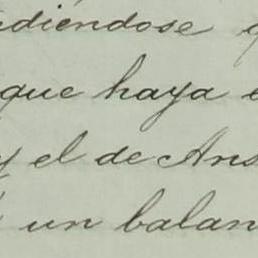 diéndose q
que haya e
y el de Ans
un balan